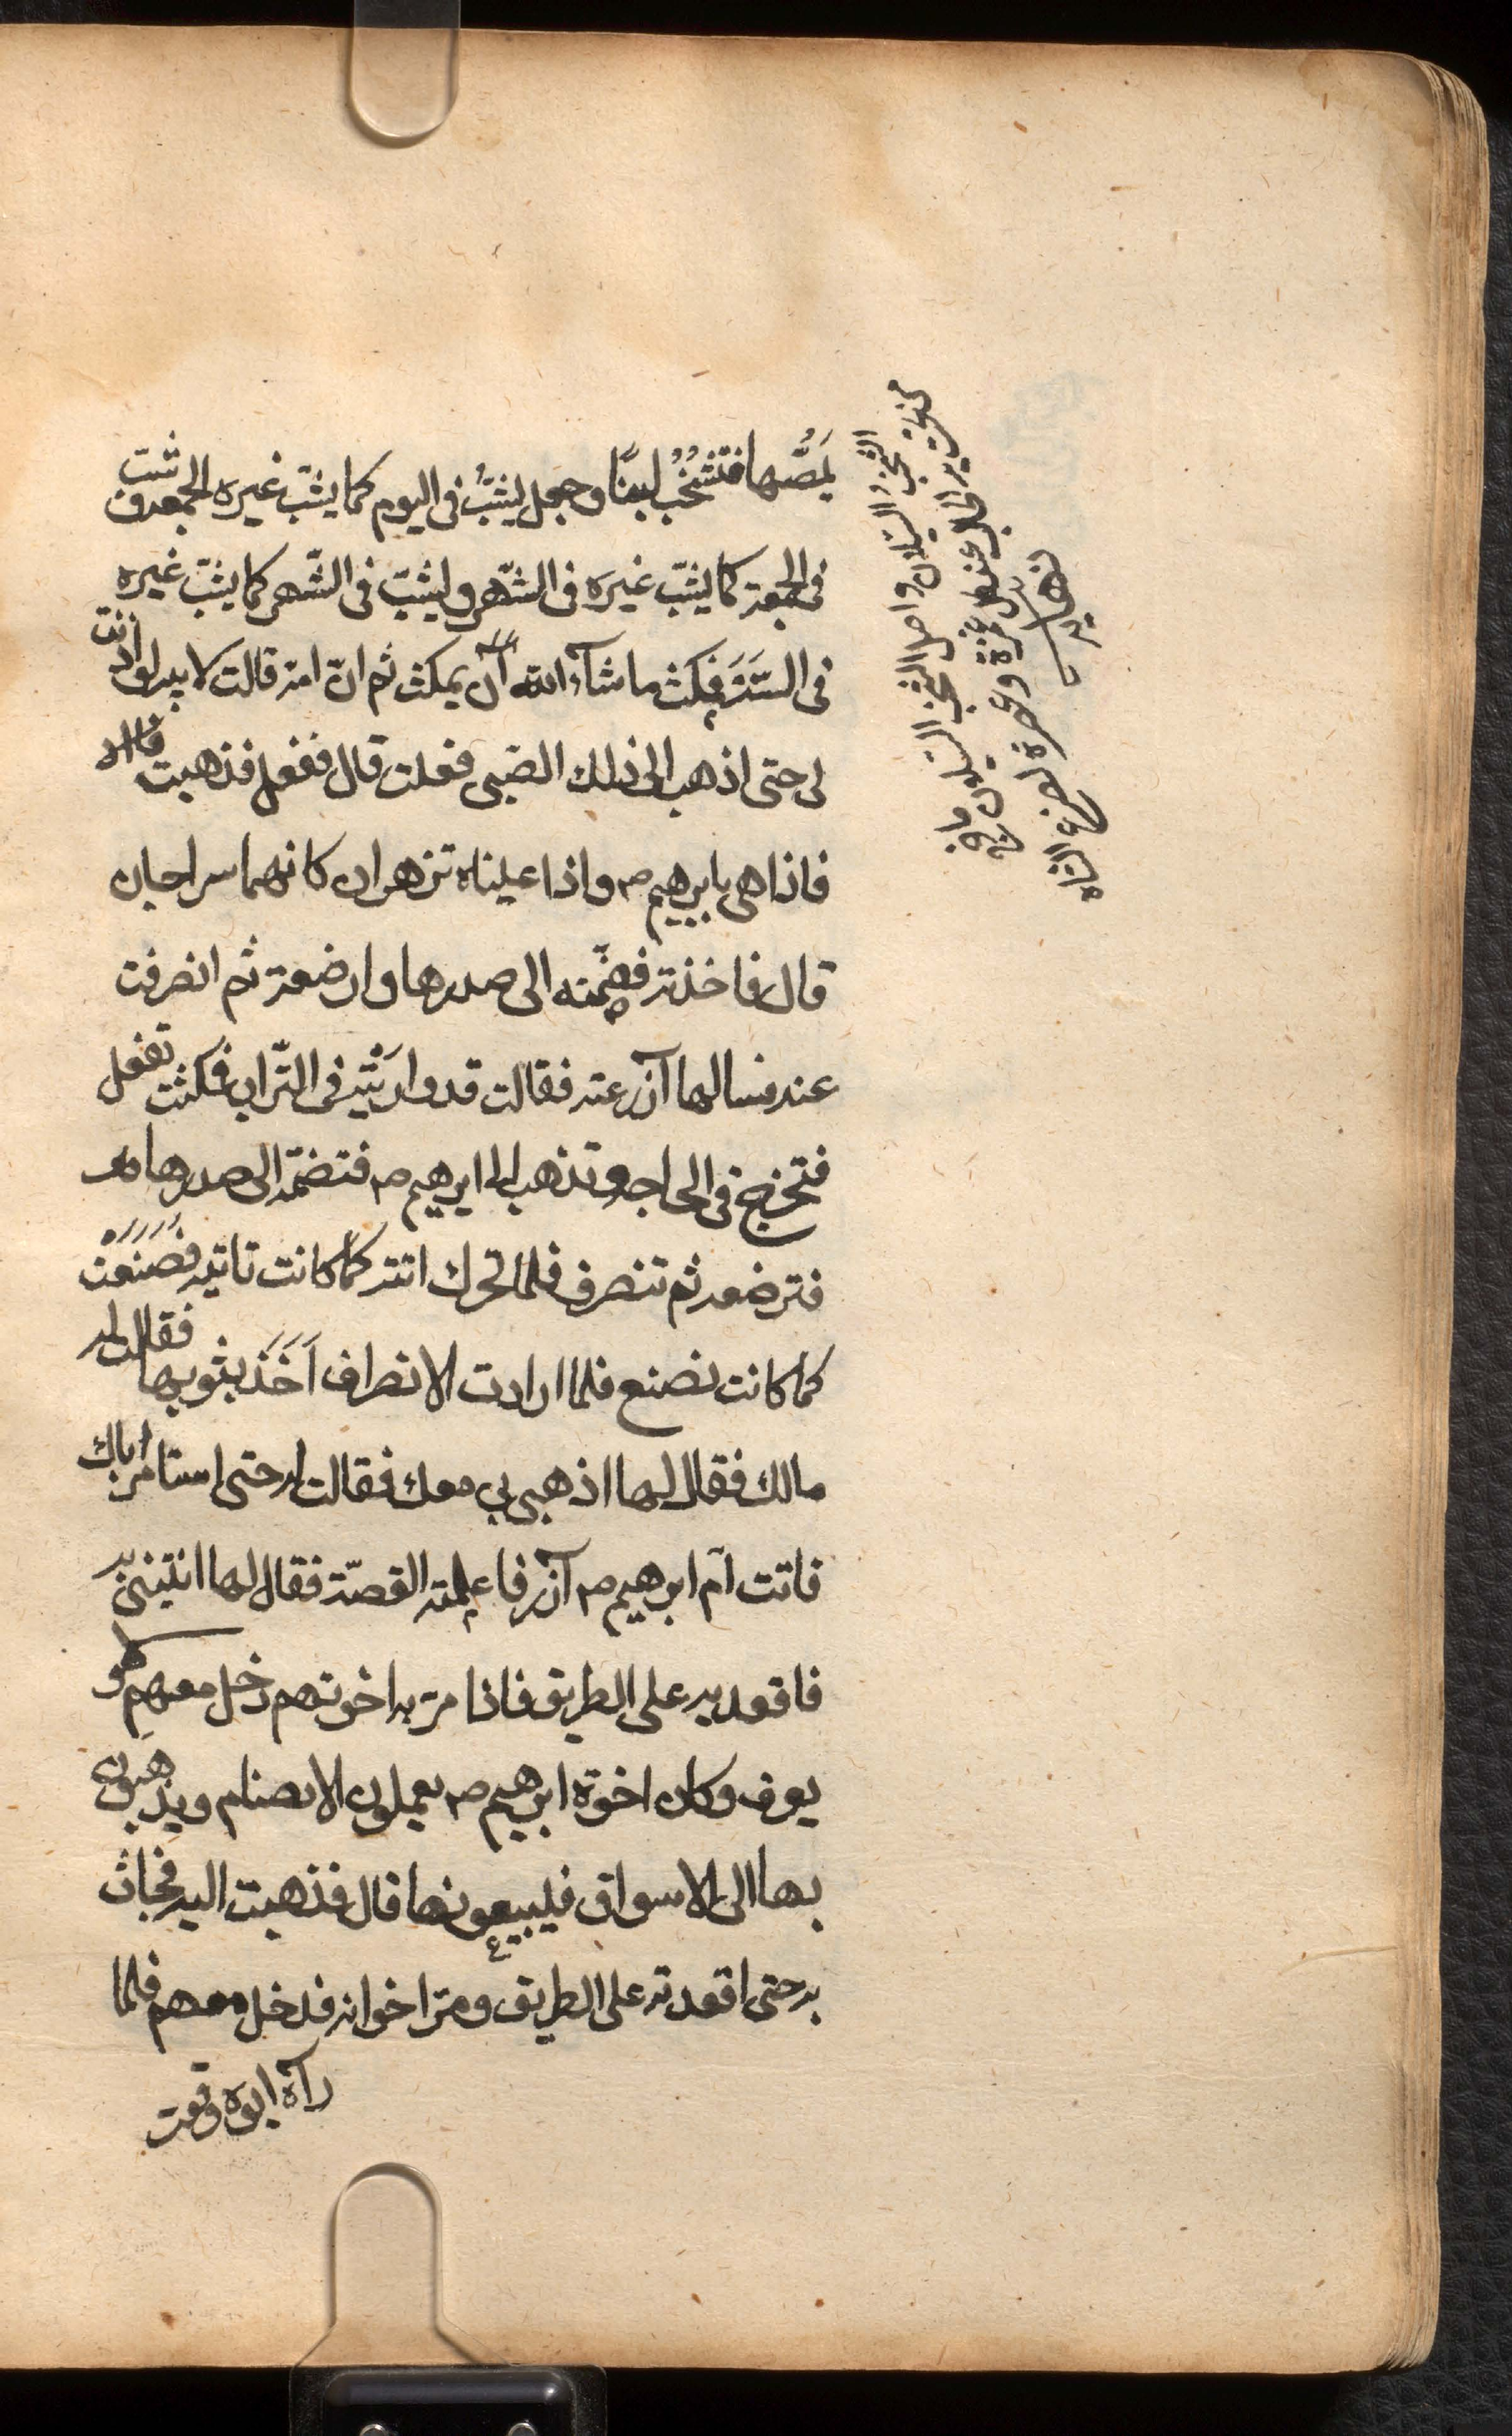 يَمُصُّها فتَشْخُبُ لبنًا وجعل يشبُّ فى اليوم كما يشبّ غيره فى الجمعة ويشب
فى الجمعة كما يشبّ غيره فى الشّهر ويشبّ فى الشّهر كما يشبّ غيره
فى السَّنَة فمكث ما شآء الله آن يمكث ثم انّ امه قالت لابيه لو اذنت
لى حتى اذهب الى ذلك الصّبى فعلت قال ففعل فذهبت قال
فاذا هى بابرهيم ص واذا عيناه تزهران كانهما سراجان
قال فاخذته فضمّته الى صدرها وارضعته ثم انصرفت
عنه فسالها آزر عنه فقالت قد واريته فى التّراب فمكثت تفعل
فتخرج فى الحاجة وتذهب الى ابرهيم ص فتضمّه الى صدرها و
فترضعه ثم تنصرف فلما تحرك اتته كما كانت تاتيه فصَنَعَت
كما كانت تصنع فلما ارادت الانصراف اَخَذَ بثوبها فقالت له
مالك فقال لها اذهبى بى معك فقالت له حتى استامر اباك
فاتت آم ابرهيم ص آزر فاعلمته القصّة فقال لها ائتينى به
فاقعديه على الطريق فاذا مرّ به اخوته دخل معهم و
يعرف وكان اخوة ابرهيم ص يعملون الاصنام ويذهبون
بها الى الاسواق فيبيعونها قال فذهبت اليه فجاءت
به حتى اقعدته على الطريق ومرّ اخوانه فدخل معهم فلما
رآه ابوه وقعت
الشخب السيلان واصل الشخب السيلان ما
يخرج من تحت يد الحالب عند كل غمزة وعصرة لضرع الشاة
نهايه